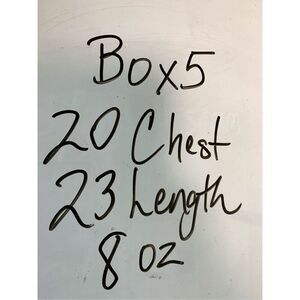 Box5
20 Chest
23 Length
8 oz